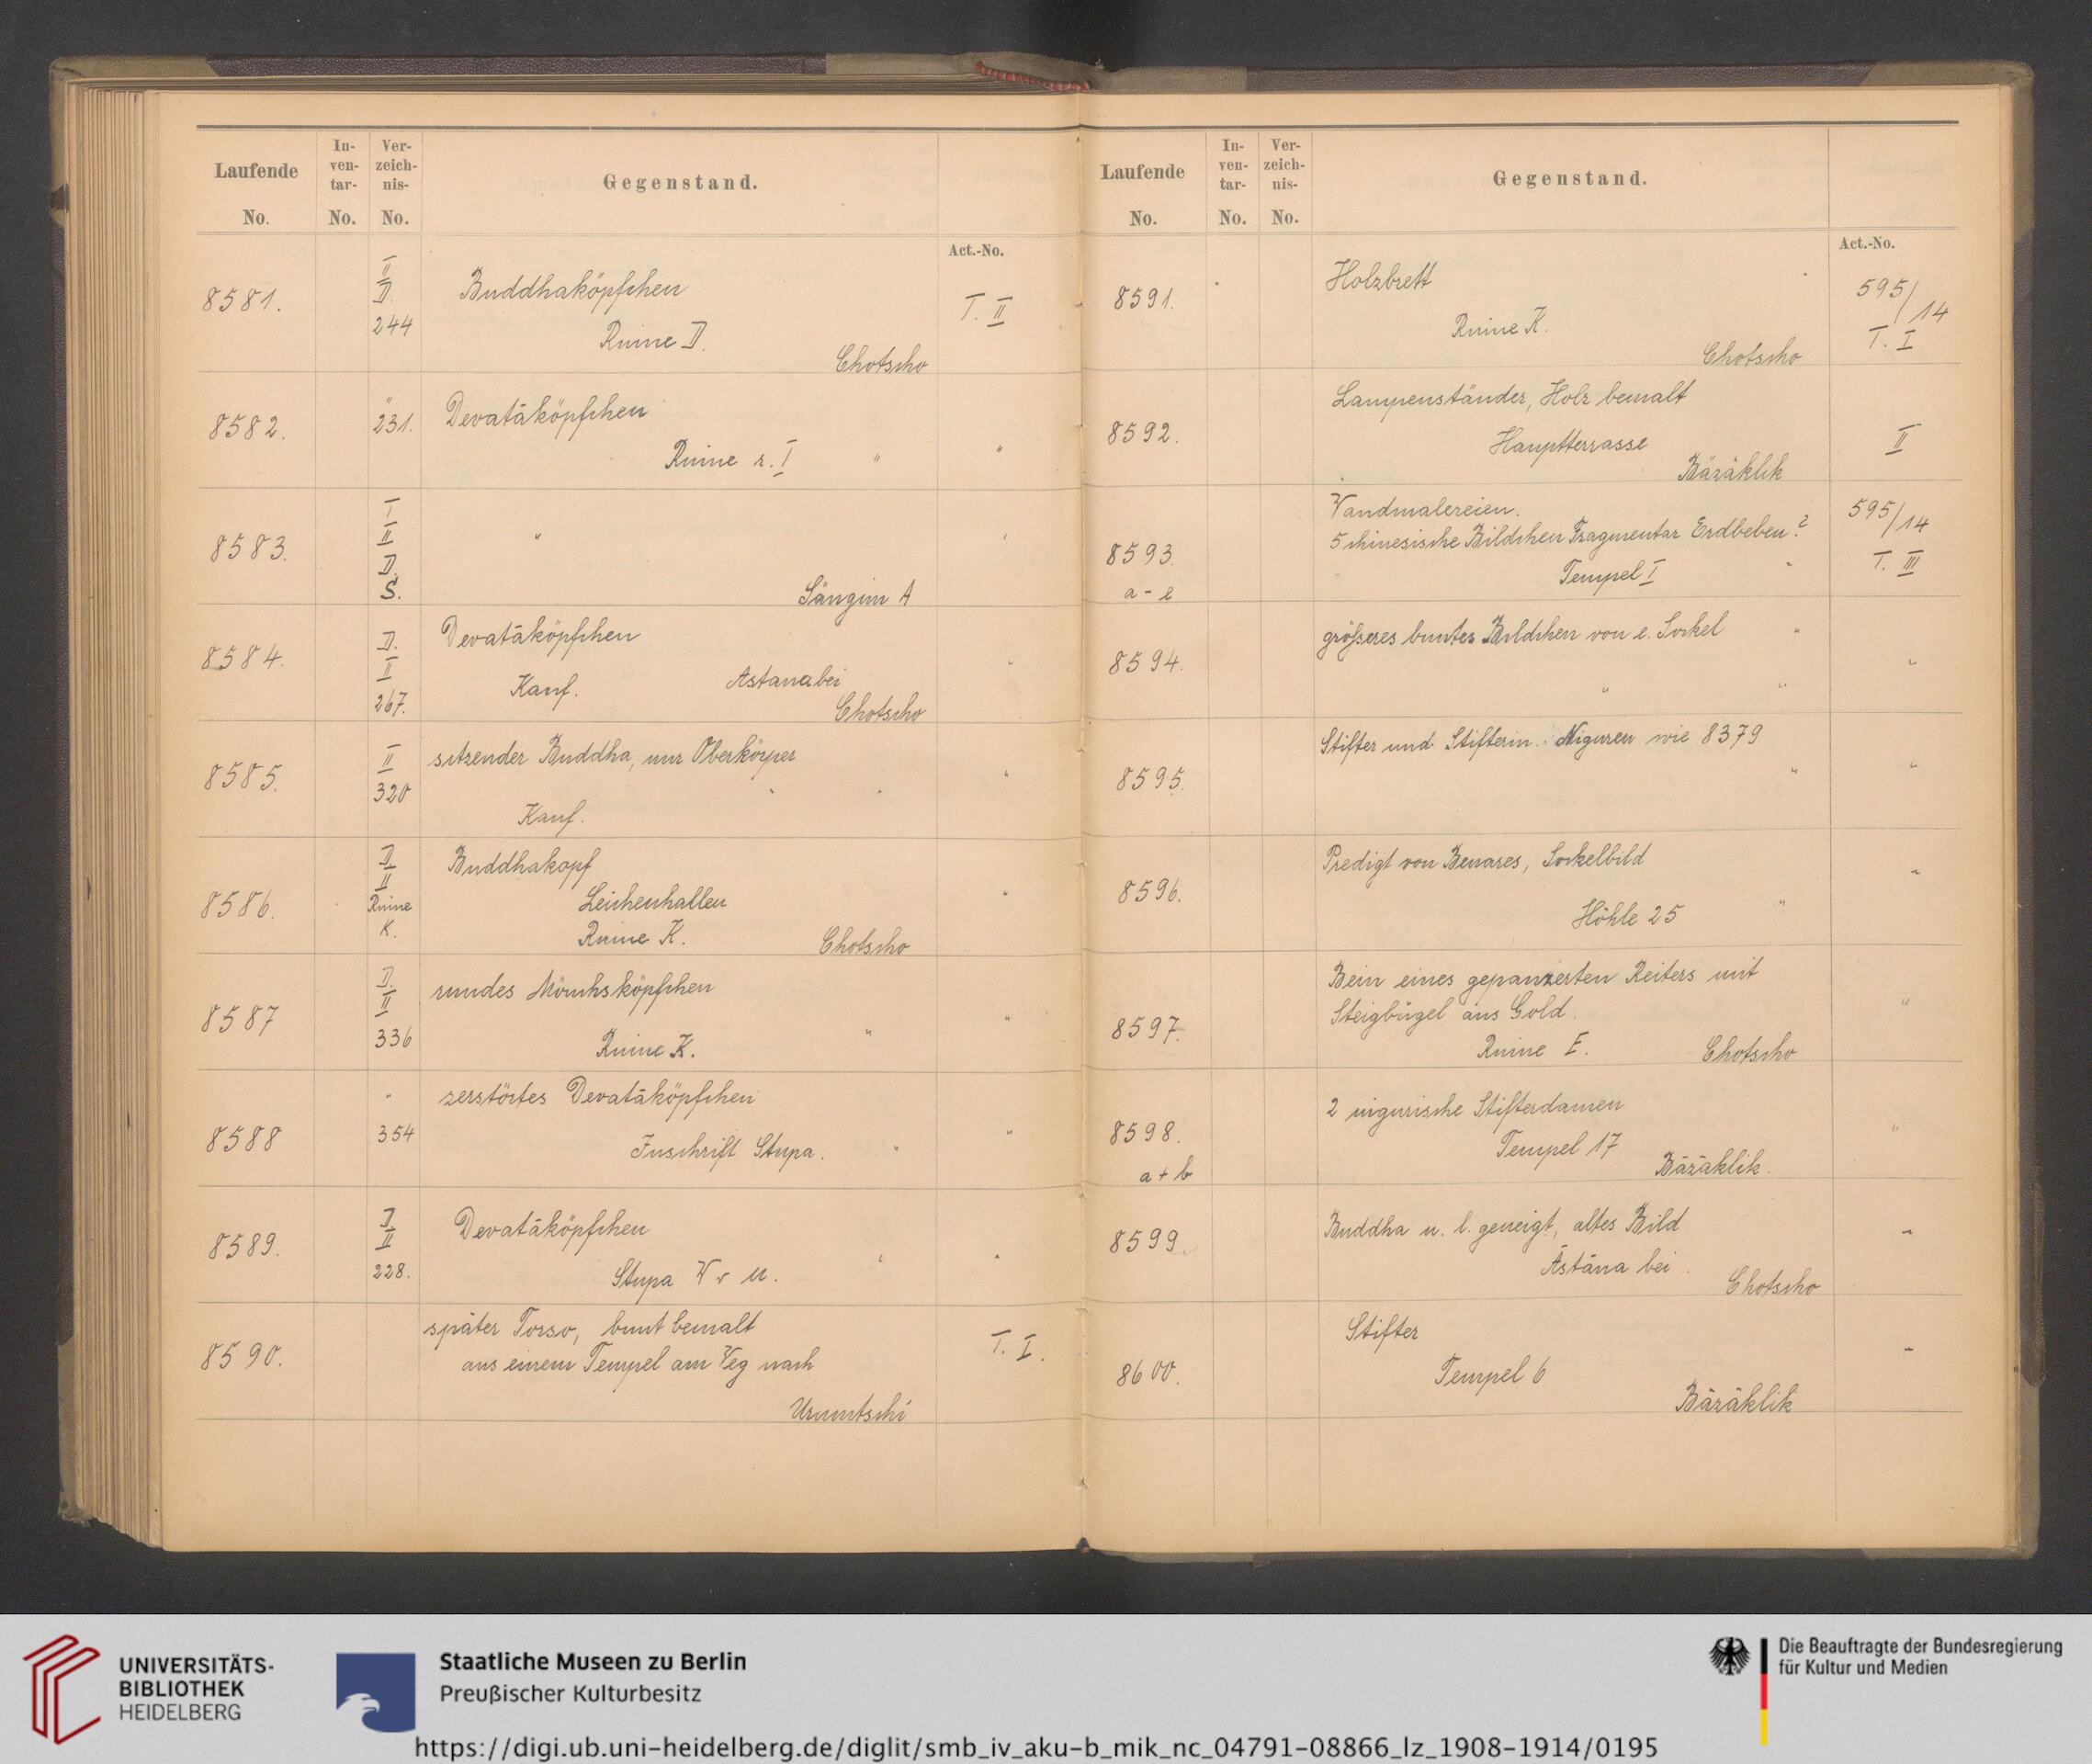 Laufende No.
In-ven-tar-No.
Ver-zeich-nis-No.
Gegenstand.
Act.-No.
8581.
II
D.
244
Buddhaköpfchen
Ruine D.
Chotscho
T. II
8582.
"
231.
Devatāköpfchen
Ruine z. I
"
"
8583.
I
II
D.
S.
"
Sängim A
"
8584.
D.
II
267.
Devatāköpfchen
Kauf.
Astana bei
Chotscho
"
8585.
II
320
sitzender Buddha, nur Oberkörper
"
"
"
Kauf.
8586.
D
II
Ruine
K.
Buddhakopf
Leichenhallen
Ruine K.
Chotscho
"
8587
D.
II
336
rundes Mönchsköpfchen
Ruine K.
"
"
8588
"
354
zerstörtes Devatāköpfchen
Inschrift Stupa.
"
"
8589.
D
II
228.
Devatāköpfchen
Stupa W v U.
"
"
8590.
später Torso, bunt bemalt
aus einem Tempel am Weg nach
Urumtschi
T. I.
Laufende No.
In-ven-tar-No.
Ver-zeich-nis-No.
Gegenstand.
Act.-No.
8591.
Holzbrett
Ruine K.
Chotscho
595/14
T. I
8592.
Lampenständer, Holz bemalt
Hauptterrasse
Bäzäklik
II
8593.
a - e
Wandmalereien.
5 chinesische Bildchen Fragmentar Erdbeben?
Tempel I
"
595/14
T. III
8594.
grösseres buntes Bildchen von e. Sockel
"
"
"
"
8595.
Stifter und Stifterin. Niguren wie 8379
"
"
8596.
Predigt von Benares, Sockelbild
Höhle 25
"
"
8597.
Bein eines gepanzerten Reiters mit
Steigbügel aus Gold.
Ruine E.
Chotscho
"
8598.
a + b
2 uigurische Stifterdamen
Tempel 17
Bäzäklik.
"
8599.
Buddha n. l. geneigt, altes Bild
Āstāna bei
Chotscho
"
8600.
Stifter
Tempel 6
Bäzäklik
"
UNIVERSITÄTS-
BIBLIOTHEK
HEIDELBERG
Staatliche Museen zu Berlin
Preußischer Kulturbesitz
Die Beauftragte der Bundesregierung
für Kultur und Medien
https://digi.ub.uni-heidelberg.de/diglit/smb_iv_aku-b_mik_nc_04791-08866_lz_1908-1914/0195